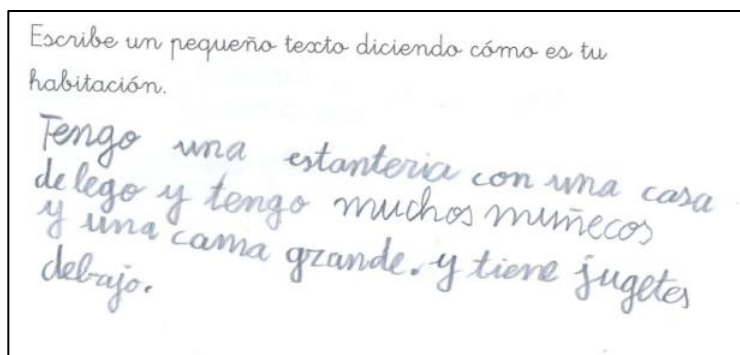 Escribe un pequeño texto diciendo cómo es tu
habitación.
Tengo una estanteria con una casa
de lego y tengo muchos muñecos
y una cama grande. y tiene jugetes
debajo.